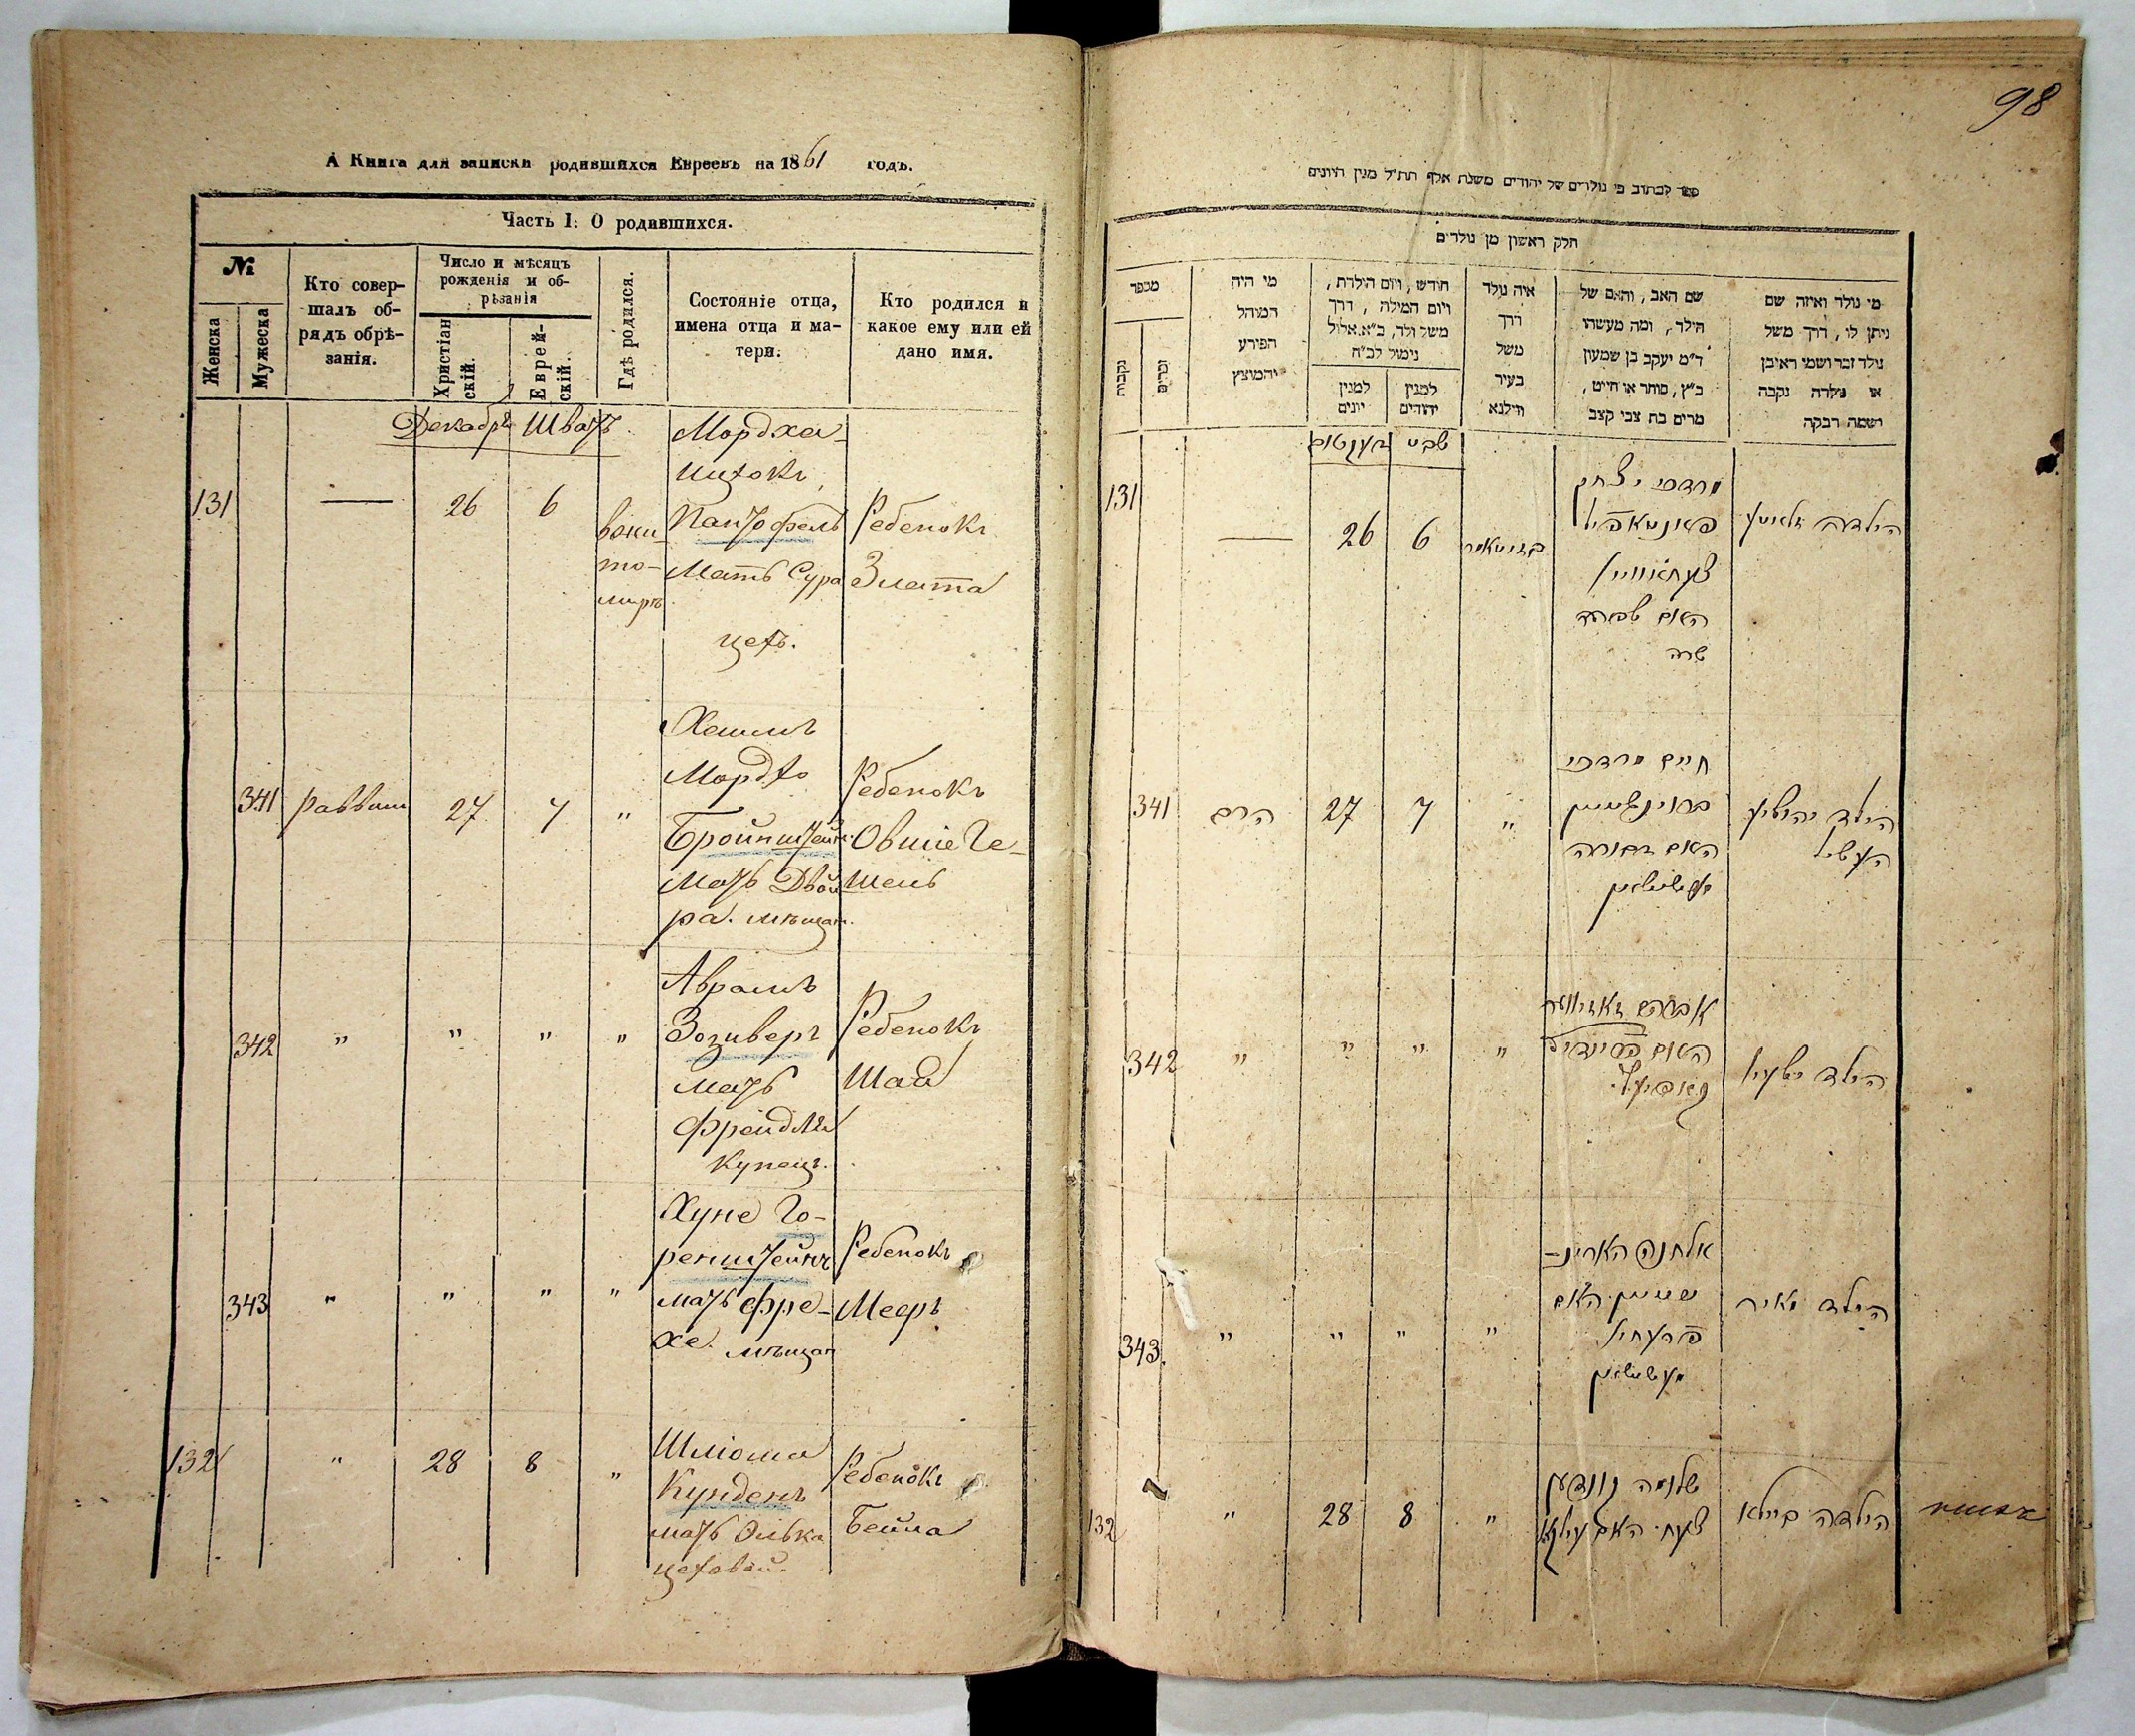 А Книга для записки родившихся Евреевъ на 1861 годъ.
Часть I. О родившихся.
№
Женска
Мужеска
Кто совер-
шалъ об-
рядъ обрѣ-
занія.
Число и мѣсяцъ
рожденія и об-
рѣзанія
Христіан
скій.
Еврей-
скій.
Гдѣ родился.
Состояніе отца,
имена отца и ма-
тери.
Кто родился и
какое ему или ей
дано имя.
Декабрь Шватъ
131 — 26 6
вжи
то-
миръ
Мордха-
Ицхокъ
Пантофель
Мать Сура
цехъ.
Ребенокъ
Злата
341 раввин 27 7 "
Хаимъ
Мордхо
Бройнштейн
Мать Двой
ра. мѣщан.
Ребенокъ
Овшіе Ге-
шель
342 " " " "
Аврамъ
Зозиверъ
мать
Фрейдля
Купецъ.
Ребенокъ
Шая
343 " " " "
Хуне Го-
ренштейнъ
мать Фре-
хе. мѣщан
Ребенокъ
Мееръ
132 " 28 8 "
Шліома
Кунденъ
мать Элька
цеховой.
Ребенокъ
Бейла
98
ספר לכתוב בו נולדים של יהודים משנת אלף תת״ל מנין היונים
חלק ראשון מן נולדים
מספר
נקבות
זכרים
מי היה
המוהל
הפורע
והמוצץ
חודש, ויום הולדת,
ויום המילה, דרך
משל ולד, ב״א אלול
נימול לב״ח
למנין
יונים
למנין
יהודים
איה נולד
דרך
משל
בעיר
ווילנא
שם האב, והאם של
הילד, ומה מעשהו
ד״מ יעקב בן שמעון
כ״ץ, סוחר או חייט,
מרים בת צבי קצב
מי נולד ואיזה שם
ניתן לו, דרך משל
נולד זכר ושמו ראובן
או נולדה נקבה
ושמה רבקה
שבט
131 — 26 6
מרדכי יצחק
פאנטאפיל
האם
שרה
הילדה זלאטע
341 הרם 27 7 "
חיים מרדכי
ברוינשטיין
האם דבורה
הילד יהושיע
העשיל
342 " " " "
אברהם
האם פריידיל
הילד ישעיה
343 " " " "
אלחנן הארינ-
שטיין האם
פרעחיל
הילד מאיר
132 " 28 8 "
שלומה קונדען
צעח׳ האם עילקא
הילדה ביילא